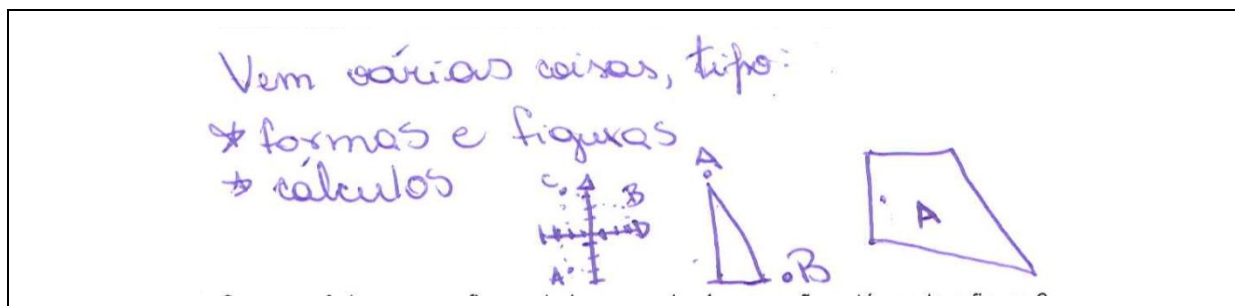 Vem várias coisas, tipo:
* formas e figuras
* cálculos
C B
A
A
B
A